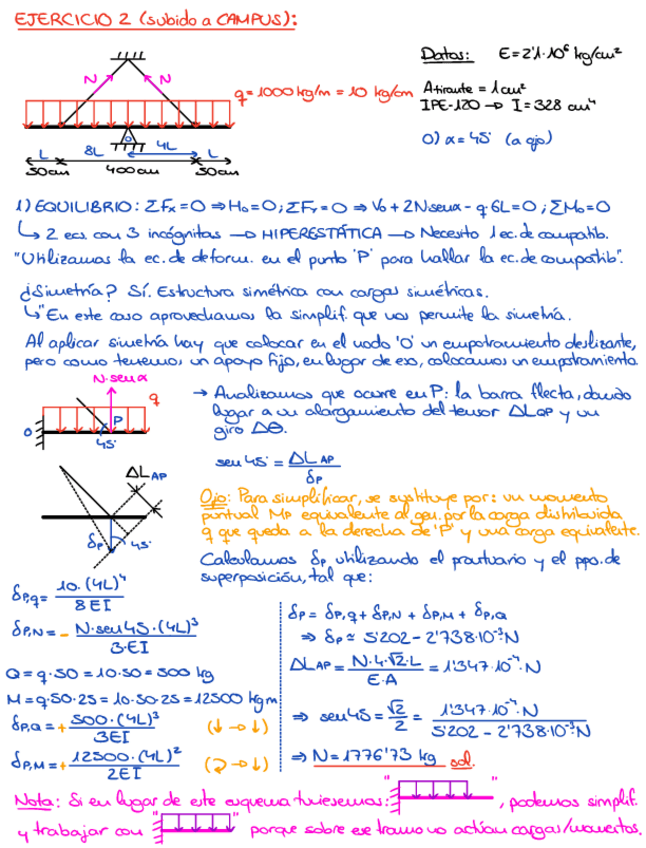 EJERCICIO 2 (subido a CAMPUS):
Datos: E=2'1·10⁶ kg/cm²
N N
q=1000kg/m = 10 kg/cm
Atirante = 1cm²
IPE-120 → I=328 cm⁴
0) α=45° (a ojo)
O
L 8L 4L L
50cm 400cm 50cm
1) EQUILIBRIO: ΣFx=0 ⇒ H₀=0; ΣFy=0 ⇒ V₀+2Nsenα-q·6L=0; ΣM₀=0
↳ 2 ecs. con 3 incógnitas → HIPERESTÁTICA → Necesito 1 ec. de compatib.
"Utilizamos la ec. de deform. en el punto 'P' para hallar la ec. de compatib".
¿Simetría? Sí. Estructura simétrica con cargas simétricas.
↳ "En este caso aprovechamos la simplif. que nos permite la simetría.
Al aplicar simetría hay que colocar en el nodo 'O' un empotramiento deslizante,
pero como tenemos un apoyo fijo, en lugar de eso, colocamos un empotramiento.
N·senα
q
O P
45°
→ Analizamos que ocurre en P: la barra flecta, dando
lugar a un alargamiento del tensor ΔLAP y un
giro Δθ.
sen45° = ΔLAP / δP
ΔLAP
δP 45°
Ojo: Para simplificar, se sustituye por: un momento
puntual Mp equivalente al gen. por la carga distribuida
q que queda a la derecha de 'P' y una carga equivalente.
Calculamos δp utilizando el prontuario y el ppo. de
superposición, tal que:
δP,q = 10·(4L)⁴ / 8EI
δP,N = - N·sen45·(4L)³ / 3·EI
Q = q·50 = 10·50 = 500 kg
M = q·50·25 = 10·50·25 = 12500 kgm
δP,Q = + 500·(4L)³ / 3EI (↓→↓)
δP,M = + 12500·(4L)² / 2EI (⤵→↓)
δP = δP,q + δP,N + δP,M + δP,Q
⇒ δP ≃ 5'202 - 2'738·10⁻³N
ΔLAP = N·4·√2·L / E·A = 1'347·10⁻⁴·N
⇒ sen45 = √2/2 = 1'347·10⁻⁴·N / 5'202 - 2'738·10⁻³N
⇒ N = 1776'73 kg sol.
Nota: Si en lugar de este esquema tuviesemos: " ", podemos simplif.
y trabajar con " " porque sobre ese tramo no actúan cargas/momentos.